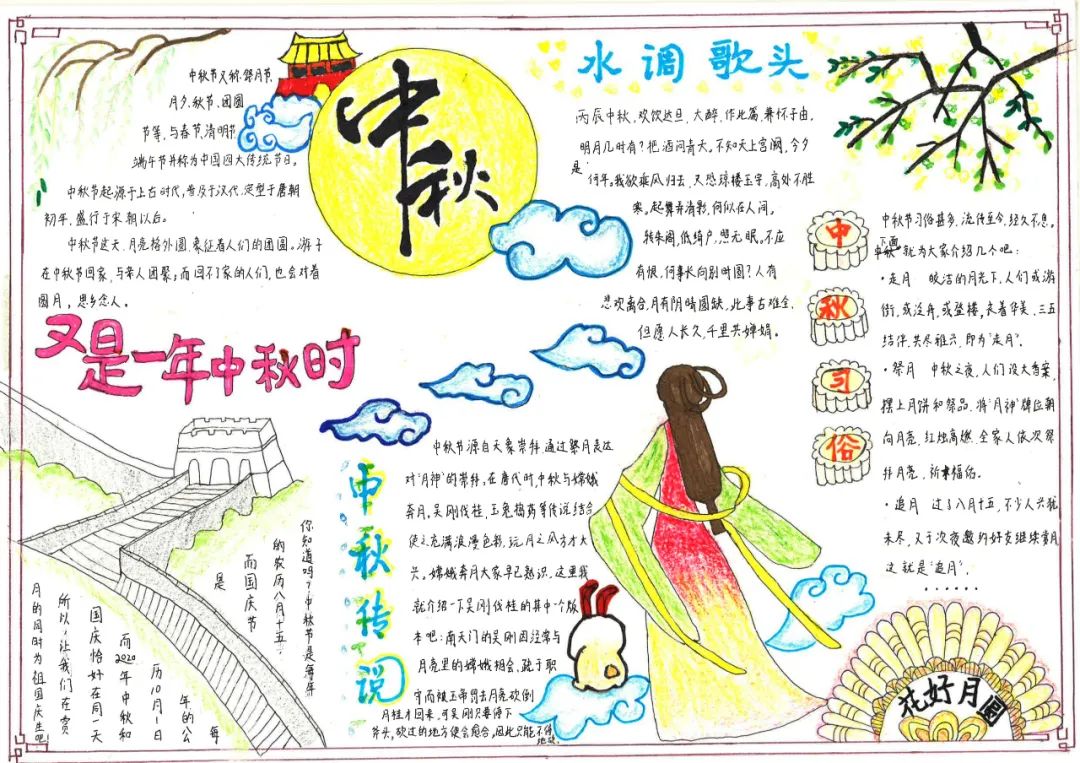 中秋节又称祭月节、
月夕、秋节、团圆
节等,与春节、清明节、
端午节并称为中国四大传统节日。
中秋节起源于上古时代,普及于汉代,定型于唐朝
初年,盛行于宋朝以后。
中秋节这天,月亮格外圆,象征着人们的团圆。游子
在中秋节回家,与亲人团聚;而回不了家的人们,也会对着
圆月,思乡念人。
中秋
水调歌头
丙辰中秋,欢饮达旦,大醉,作此篇,兼怀子由。
明月几时有?把酒问青天。不知天上宫阙,今夕
是
何年。我欲乘风归去,又恐琼楼玉宇,高处不胜
寒。起舞弄清影,何似在人间。
转朱阁,低绮户,照无眠。不应
有恨,何事长向别时圆?人有
悲欢离合,月有阴晴圆缺,此事古难全。
但愿人长久,千里共婵娟。
又是一年中秋时
中秋习俗
中秋节习俗甚多,流传至今,经久不息。
下面
就为大家介绍几个吧:
·走月 皎洁的月光下,人们或游
街,或泛舟,或登楼,衣着华美,三五
结伴,共尽雅兴,即为"走月"。
·祭月 中秋之夜,人们设大香案,
摆上月饼和祭品,将"月神"牌位朝
向月亮,红烛高燃,全家人依次祭
拜月亮,祈求福佑。
·追月 过了八月十五,不少人兴犹
未尽,又于次夜邀约好友继续赏月
这就是"追月"。
······
中秋传说
中秋节源自天象崇拜,通过祭月表达
对"月神"的崇拜,在唐代时,中秋与嫦娥
奔月、吴刚伐桂、玉兔捣药等传说结合
使之充满浪漫色彩,玩月之风方才大
兴。嫦娥奔月大家早已熟识,这里我
就介绍一下吴刚伐桂的其中一个版
本吧:南天门的吴刚因经常与
月亮里的嫦娥相会,疏于职
守而被玉帝罚去月亮砍倒
月桂才回来,可吴刚只要停下
斧头,砍过的地方便会愈合,因此只能不停
地砍。
你知道吗?中秋节是每年
的农历八月十五,
而国庆节
是
每
年的公
历10月1日
而2020年中秋和
国庆恰好在同一天
所以,让我们在赏
月的同时为祖国庆生吧!
花好月圆